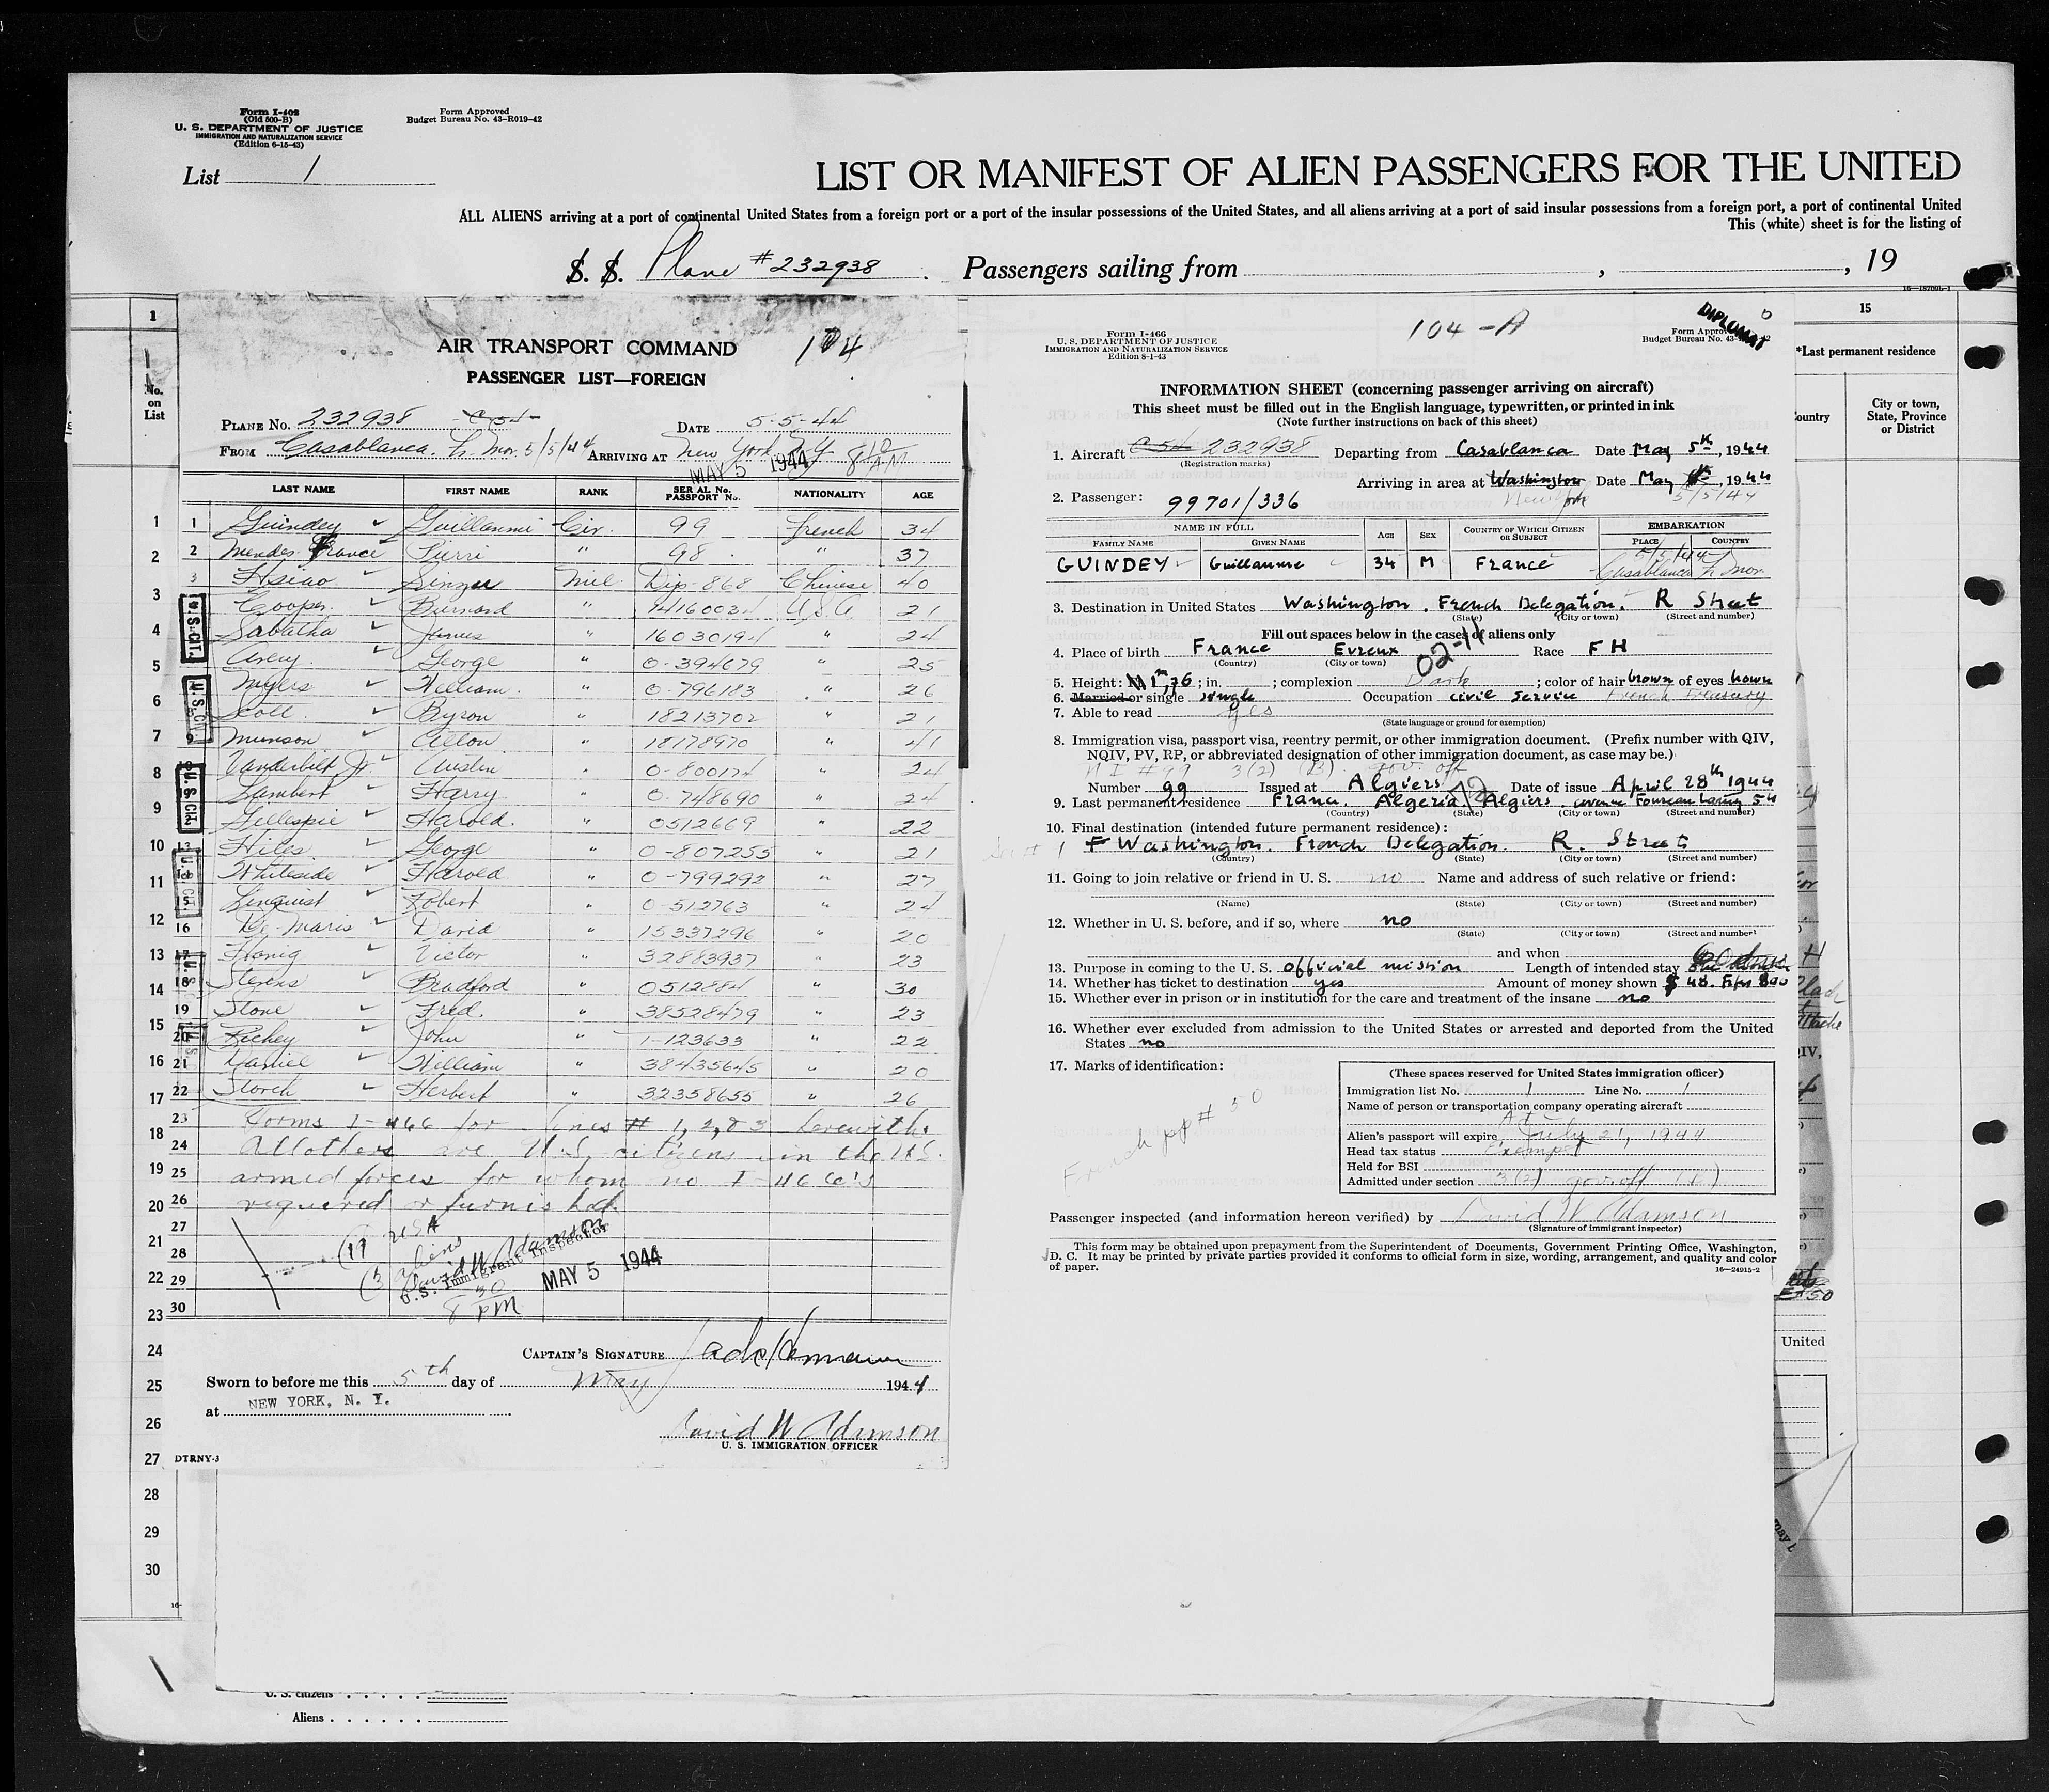 Form I-402
(Old 500-B)
U. S. DEPARTMENT OF JUSTICE
IMMIGRATION AND NATURALIZATION SERVICE
(Edition 6-15-43)
Form Approved
Budget Bureau No. 43-R019-42
List 1
LIST OR MANIFEST OF ALIEN PASSENGERS FOR THE UNITED
ALL ALIENS arriving at a port of continental United States from a foreign port or a port of the insular possessions of the United States, and all aliens arriving at a port of said insular possessions from a foreign port, a port of continental United
This (white) sheet is for the listing of
S. S. Plane #232938 . Passengers sailing from , , 19
1
No. on List
AIR TRANSPORT COMMAND 104
PASSENGER LIST—FOREIGN
PLANE No. 232938 C54 DATE 5-5-44
FROM Casablanca. Fr. Mor. 5/5/44 ARRIVING AT New York NY
MAY 5 1944
LAST NAME FIRST NAME RANK SERIAL No. PASSPORT No. NATIONALITY AGE
1 Guindey Guillaume Civ. 99 French 34
2 Mendes-France Pierre " 98 " 37
3 Hsiao Sinzeu Mil. Dip-868 Chinese 40
Cooper Burnard " 14160034 USA 21
Sabatha James " 16030194 " 24
Avey George " 0-394679 " 25
Myers William " 0-796183 " 26
Scott Byron " 18213702 " 21
Munson Allon " 18178970 " 41
Vanderbilt Jr. Austin " 0-800174 " 24
Lambert Harry " 0-748690 " 24
Gillespie Harold " 0512669 " 22
13 Hiles George " 0-807255 " 21
14 Whiteside Harold " 0-799292 " 27
15 Linquist Robert " 0-512763 " 24
16 De Maris David " 15337296 " 20
17 Honig Victor " 32883937 " 23
18 Stevens Bradford " 0512884 " 30
19 Stone Fred. " 38528479 " 23
20 Richey John " 1-123633 " 22
21 Daniel William " 38435645 " 20
22 Storch Herbert " 32358655 " 26
23 Forms I-466 for lines # 1, 2, & 3 herewith.
24 All others are U.S. citizens in the U.S.
25 armed forces for whom no I-466's
26 required or furnished.
27 USA
28 (3 aliens
David W Adamson
U.S. Immigrant Inspector
MAY 5 1944
29 8 30 PM
30
CAPTAIN'S SIGNATURE
Sworn to before me this 5th day of May 1944
at NEW YORK, N. Y.
David W Adamson
U. S. IMMIGRATION OFFICER
DTRNY-3
1
2
3
4
5
6
7
8
9
10
11
12
13
14
15
16
17
18
19
20
21
22
23
24
25
26
27
28
29
30
U. S. citizens
Aliens
104-A
DIPLOMAT
Form I-466
U. S. DEPARTMENT OF JUSTICE
IMMIGRATION AND NATURALIZATION SERVICE
Edition 8-1-43
Form Approved
Budget Bureau No. 43-
INFORMATION SHEET (concerning passenger arriving on aircraft)
This sheet must be filled out in the English language, typewritten, or printed in ink
(Note further instructions on back of this sheet)
1. Aircraft C54 232938 Departing from Casablanca Date May 5th, 1944
(Registration marks)
Arriving in area at Washington Date May , 1944
New York 5/5/44
2. Passenger: 99701/336
NAME IN FULL AGE SEX COUNTRY OF WHICH CITIZEN OR SUBJECT EMBARKATION
FAMILY NAME GIVEN NAME PLACE COUNTRY
GUINDEY Guillaume 34 M France 5/5/44 Casablanca Fr Mor.
3. Destination in United States Washington. French Delegation. R Street
(State) (City or town) (Street and number)
Fill out spaces below in the cases of aliens only
4. Place of birth France Evreux Race FH
(Country) (City or town)
02-11
5. Height: 1m,76; in. ; complexion Dark ; color of hair brown of eyes brown
6. Married or single single Occupation civil service French Treasury
7. Able to read Yes
(State language or ground for exemption)
8. Immigration visa, passport visa, reentry permit, or other immigration document. (Prefix number with QIV,
NQIV, PV, RP, or abbreviated designation of other immigration document, as case may be.)
#99 3(2) (B) gov. off
Number 99 Issued at Algiers Date of issue April 28th 1944
9. Last permanent residence France. Algeria. Algiers. avenue Foureau Lamy 54
(Country) (State) (City or town) (Street and number)
10. Final destination (intended future permanent residence):
Washington. French Delegation. R. Street
(Country) (State) (City or town) (Street and number)
11. Going to join relative or friend in U. S. no Name and address of such relative or friend:
(Name) (State) (City or town) (Street and number)
12. Whether in U. S. before, and if so, where no
(State) (City or town) (Street and number)
and when
13. Purpose in coming to the U. S. official mission Length of intended stay
14. Whether has ticket to destination yes Amount of money shown $ 48.
15. Whether ever in prison or in institution for the care and treatment of the insane no
16. Whether ever excluded from admission to the United States or arrested and deported from the United
States no
17. Marks of identification:
French pp# 50
(These spaces reserved for United States immigration officer)
Immigration list No. 1 Line No. 1
Name of person or transportation company operating aircraft
ATC
Alien's passport will expire July 21, 1944
Head tax status Exempt
Held for BSI
Admitted under section 3(2) gov. off
Passenger inspected (and information hereon verified) by David W Adamson
(Signature of immigrant inspector)
This form may be obtained upon prepayment from the Superintendent of Documents, Government Printing Office, Washington,
D. C. It may be printed by private parties provided it conforms to official form in size, wording, arrangement, and quality and color
of paper.
16—24915-2
15
*Last permanent residence
Country
City or town, State, Province or District
United